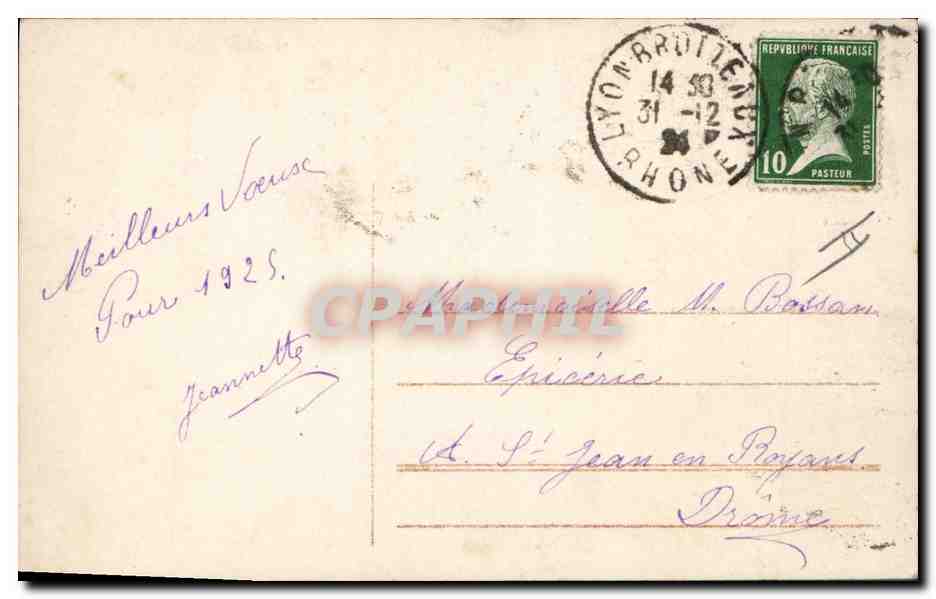 LYON-BROTTEAUX
14 30
31 -12
RHONE
REPVBLIQUE FRANÇAISE
10
PASTEUR
POSTES
Meilleurs Voeuse
Pour 1925.
Jeannette
Mademoiselle M. Bossan
Epicérie
A. St Jean en Royans
Drôme
CPAPHIL